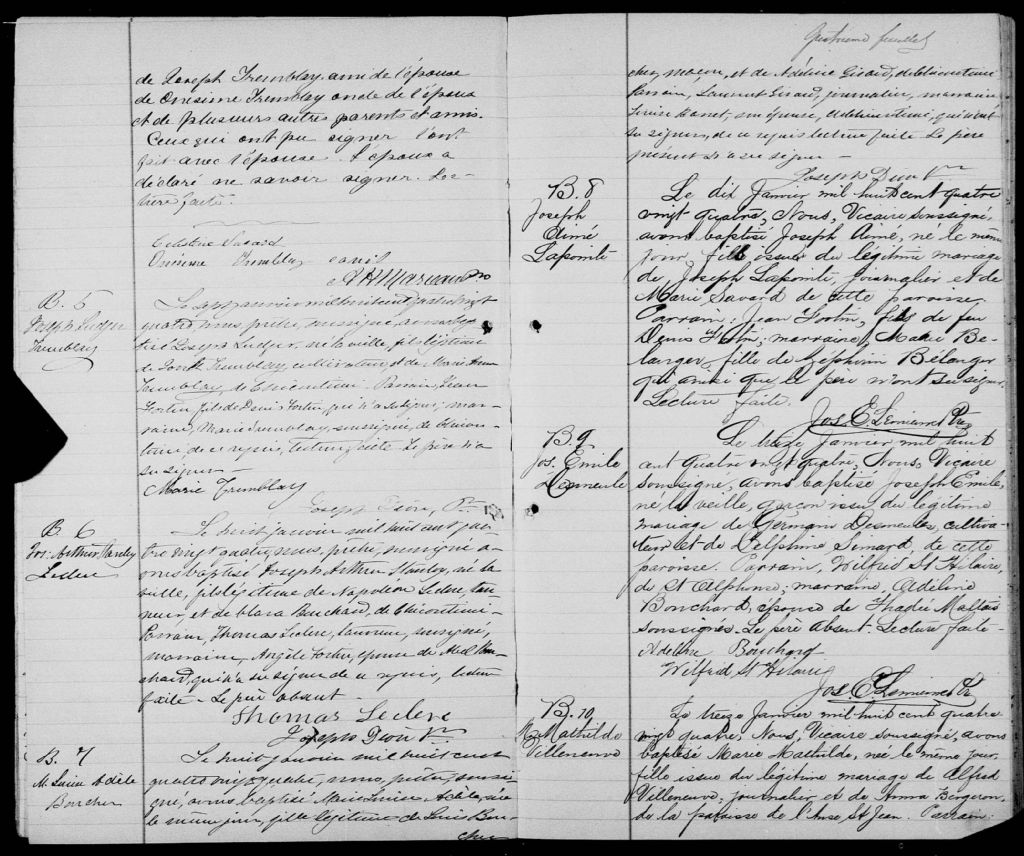 de Joseph Tremblay ami de l'épouse
de Onesime Tremblay oncle de l'époux
et de plusieurs autres parents et amis.
Ceux qui ont pu signer l'ont
fait avec l'épouse. L'époux a
déclaré ne savoir signer. Lec-
ture faite.
Célestine Savard
Onésime Tremblay
B. 5
Joseph Ludger
Tremblay
quatre, nous, prêtre, soussigné, avons bap
tisé Joseph Ludger, né la veille, fils légitime
de Joseph Tremblay, cultivateur, et de Marie
Tremblay de Chicoutimi. Parrain, Jean
Fortin, fils de Denis Fortin, qui n'a su signer; mar-
raine, Marie Tremblay, soussignée, de Chicou-
timi de ce requis, lecture faite. Le père n'a
su signer
Marie Tremblay
Joseph Dion, Ptre
B. 6
Jos. Arthur
Leclerc
Le huit janvier mil huit cent qua
tre vingt quatre, nous, prêtre, soussigné a-
vons baptisé Joseph Arthur, né la
veille, fils légitime de Napoléon Leclerc, tan
neur, et de Clara Bouchard, de Chicoutimi.
Parrain, Thomas Leclerc, tanneur, soussigné,
marraine, Angèle Fortin, épouse de Abel Bou-
chard, qui n'a su signer de ce requis, lecture
faite. Le père absent.
Thomas Leclerc
Joseph Dion Ptre
B. 7
M. Luise Adèle
Boucher
Le huit janvier mil huit cent
quatre vingt quatre, nous, prêtre, soussi
gné, avons baptisé Marie Luise Adèle, née
le même jour, fille légitime de Luis Bou-
cher
feuillet
cher, maçon, et de Adéline Girard, de Chicoutimi
Parrain, Laurent Girard, journalier, marraine
son épouse, de Chicoutimi, qui n'ont
su signer, de ce requis lecture faite. Le père
présent n'a su signer
Joseph Dion Ptre
B. 8
Joseph
Aimé
Lapointe
Le dix Janvier mil huit cent quatre
vingt quatre, Nous, Vicaire soussigné,
avons baptisé Joseph Aimé, né le même
jour, fils issu du légitime mariage
de Joseph Lapointe, journalier et de
Marie Savard de cette paroisse.
Parrain: Jean Fortin, fils de feu
Denis Fortin; marraine, Marie Bé-
langer, fille de Zéphirin Bélanger
qui ainsi que le père n'ont su signer.
Lecture faite.
Jos E. Lemieux Ptre
B. 9
Jos. Emile
Desmeules
Le treize Janvier mil huit
cent quatre vingt quatre, Nous, Vicaire
soussigné, avons baptisé Joseph Emile,
né la veille, garçon issu du légitime
mariage de Germain Desmeules, cultiva-
teur et de Delphine Simard, de cette
paroisse. Parrain, Wilfrid St Hilaire,
de St Alphonse; marraine, Adéline
Bouchard, épouse de Thadée Maltais
soussignés. Le père absent. Lecture faite.
Adeline Bouchard
Wilfrid St Hilaire
Jos E. Lemieux Ptre
B. 10
M. Mathilde
Villeneuve
Le treize Janvier mil huit cent quatre
vingt quatre, Nous, Vicaire soussigné, avons
baptisé Marie Mathilde, née le même jour,
fille issue du légitime mariage de Alfred
Villeneuve, journalier et de Anna Bergeron,
de la paroisse de l'Anse St Jean. Parrain: